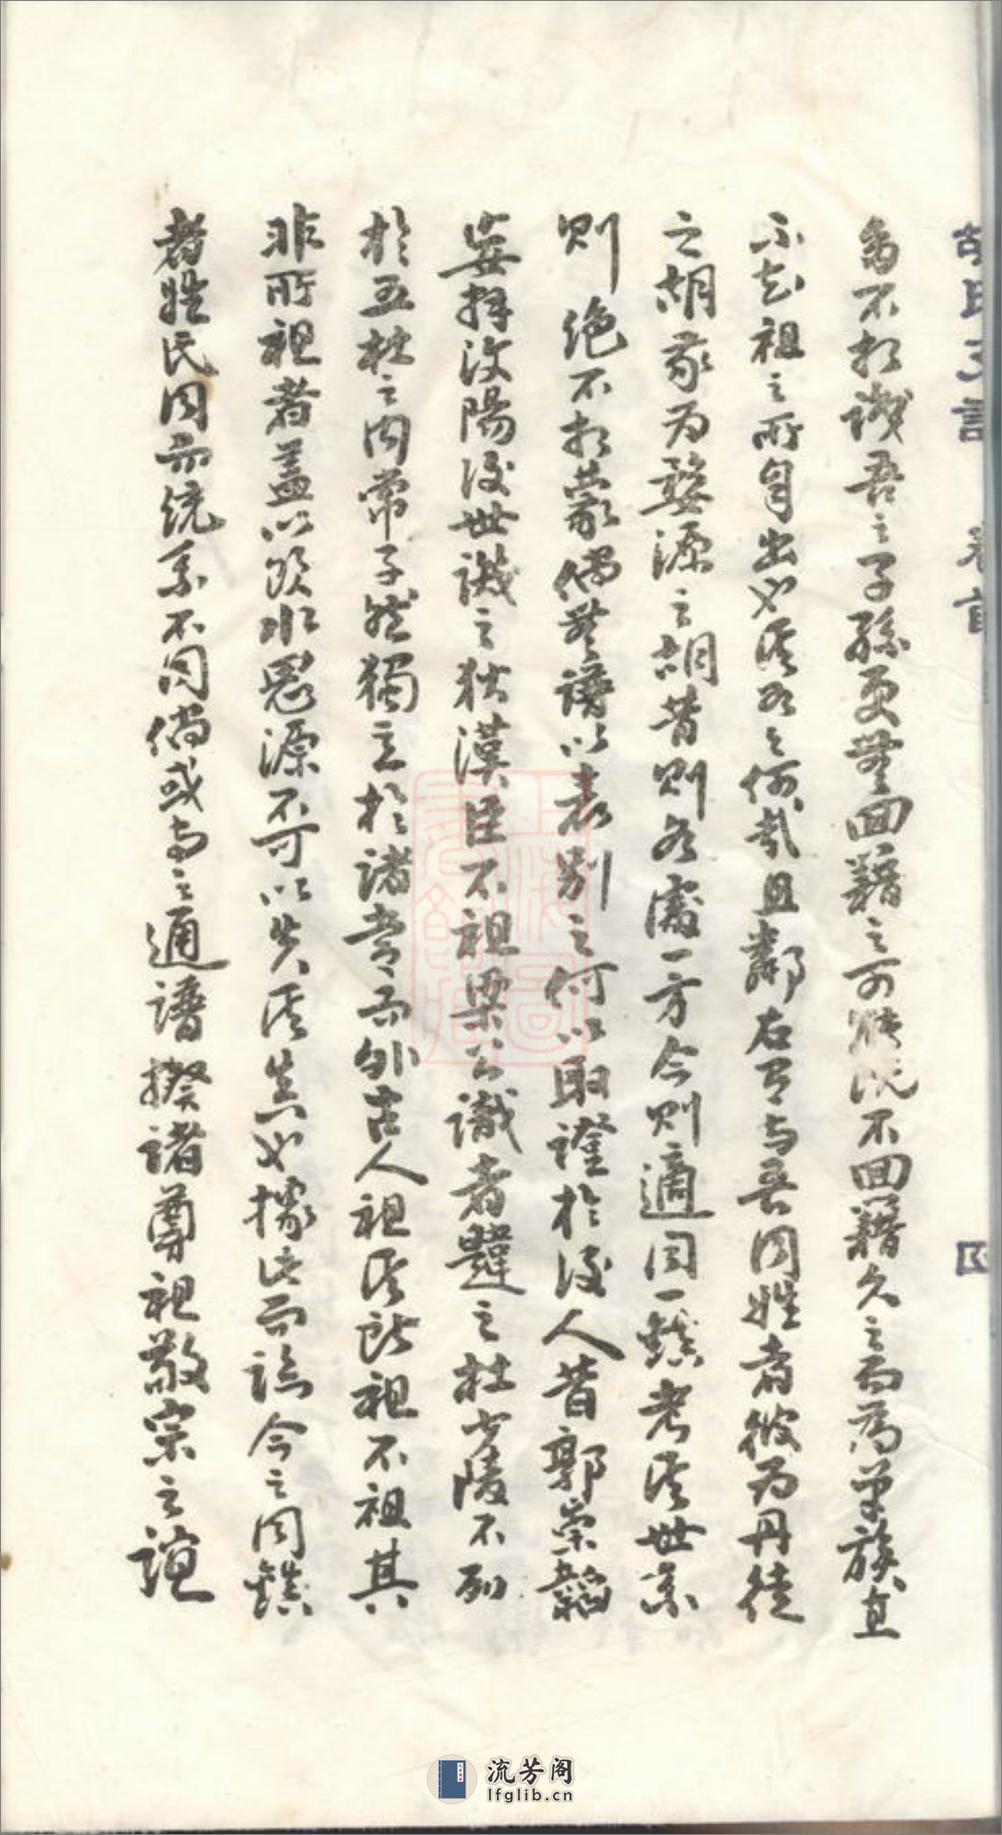 胡氏支譜 卷首
為不相識吾之子孫更無回籍之可能既不回籍久之而為單族且
不知祖之所自出必後有之何哉且鄰右有與吾同姓者彼為丹徒
之胡我為婺源之胡昔則各處一方今則適同一鎮考其世系
則絕不相蒙倘無譜以表別之何以取證於後人昔郭崇韜
妄拜汾陽後世譏之狄漢臣不祖梁公識者韙之杜少陵不列
於五杜之內常孑然獨立於諸常而外古人祖其所祖不祖其
非所祖者蓋以飲水思源不可以失其真必據此而論今之同鎮
者姓氏同而統系不同倘或與之通譜揆諸尊祖敬宗之誼
流芳阁
lfglib.cn